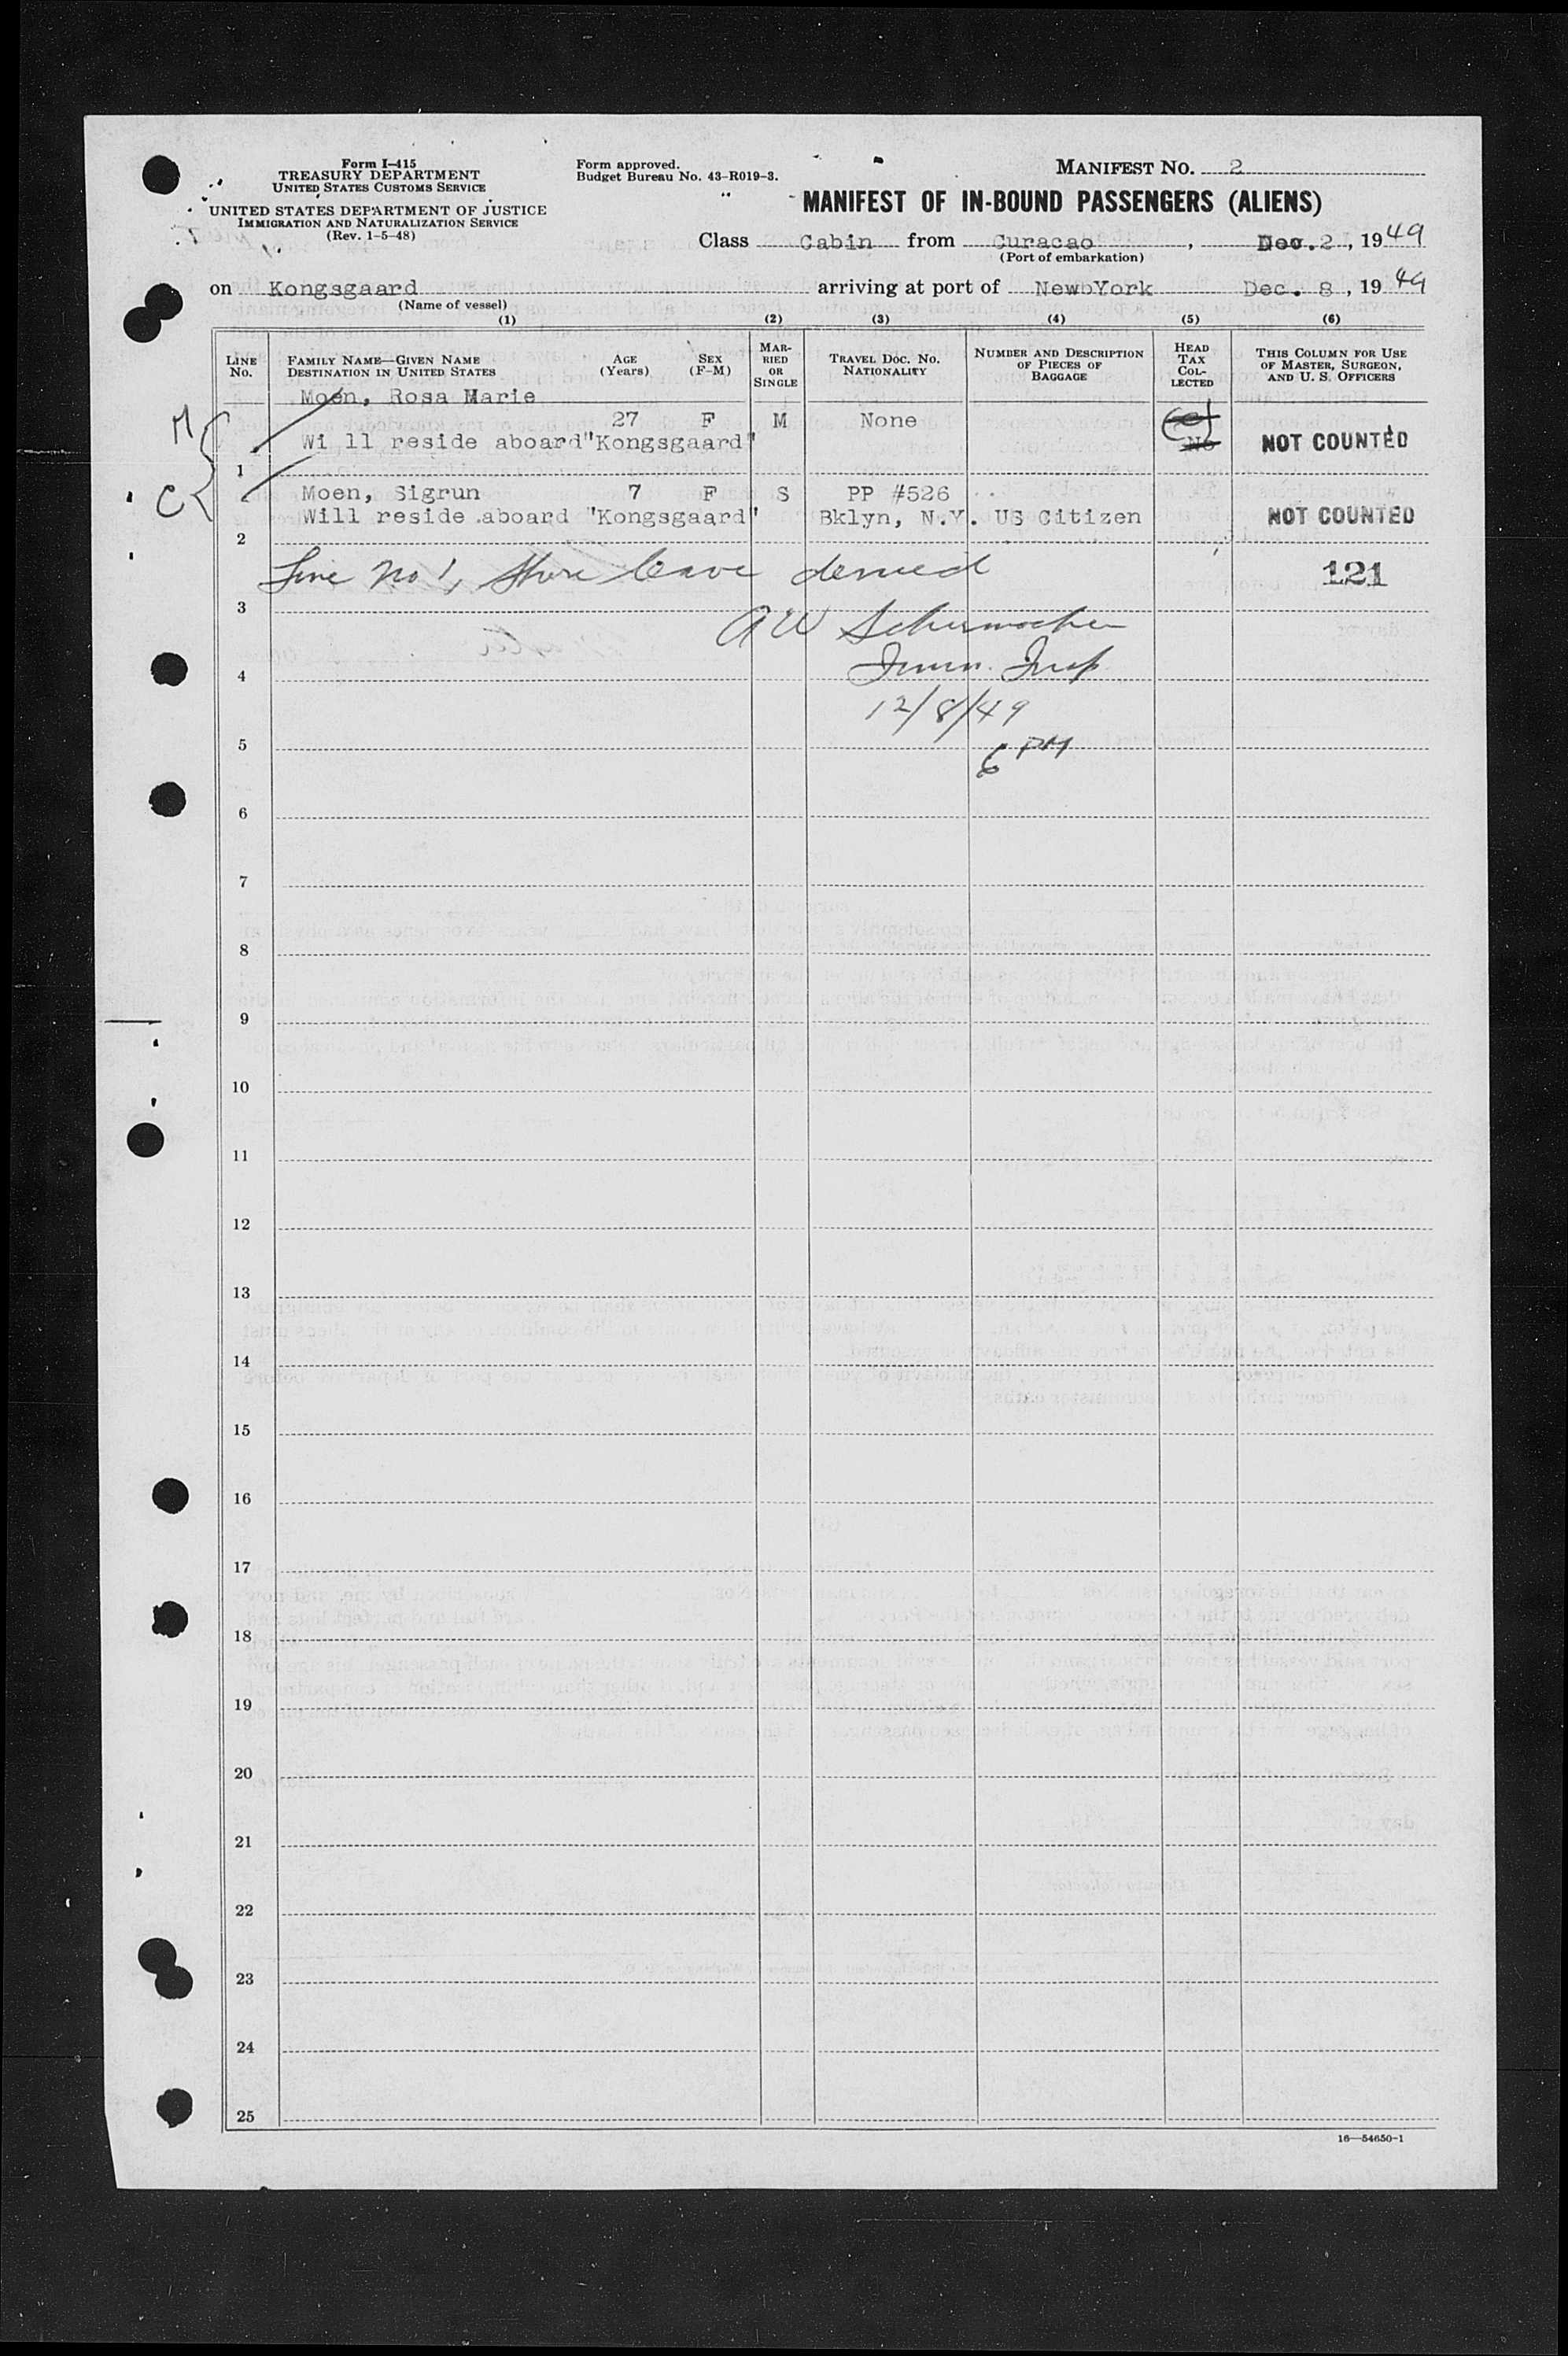 Form I-415
TREASURY DEPARTMENT
UNITED STATES CUSTOMS SERVICE
UNITED STATES DEPARTMENT OF JUSTICE
IMMIGRATION AND NATURALIZATION SERVICE
(Rev. 1-5-48)
Form approved.
Budget Bureau No. 43-R019-3.
MANIFEST NO. 2
MANIFEST OF IN-BOUND PASSENGERS (ALIENS)
Class Cabin from Curacao, Dec. 2, 1949
(Port of embarkation)
on Kongsgaard arriving at port of NewbYork Dec. 8, 1949
(Name of vessel)
(1) (2) (3) (4) (5) (6)
LINE NO. FAMILY NAME—GIVEN NAME DESTINATION IN UNITED STATES AGE (Years) SEX (F-M) MARRIED OR SINGLE TRAVEL DOC. NO. NATIONALITY NUMBER AND DESCRIPTION OF PIECES OF BAGGAGE HEAD TAX COLLECTED THIS COLUMN FOR USE OF MASTER, SURGEON, AND U. S. OFFICERS
Moen, Rosa Marie
M 27 F M None
Wi ll reside aboard"Kongsgaard" No NOT COUNTED
1
C Moen, Sigrun 7 F S PP #526
Will reside aboard "Kongsgaard" Bklyn, N.Y. US Citizen NOT COUNTED
2
Line No 1, Shore leave denied 121
3
AW Schumacher
4 Imm. Insp
12/8/49
5
6 PM
6
7
8
9
10
11
12
13
14
15
16
17
18
19
20
21
22
23
24
25
16—54650-1